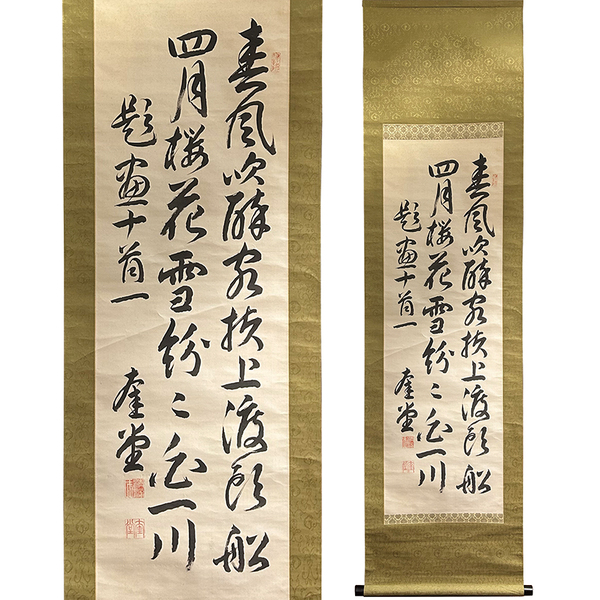 春風吹酔客扶上渡頭船
四月桜花雪紛々白一川
題画十首一
奎堂
春風吹酔客扶上渡頭船
四月桜花雪紛々白一川
題画十首一
奎堂